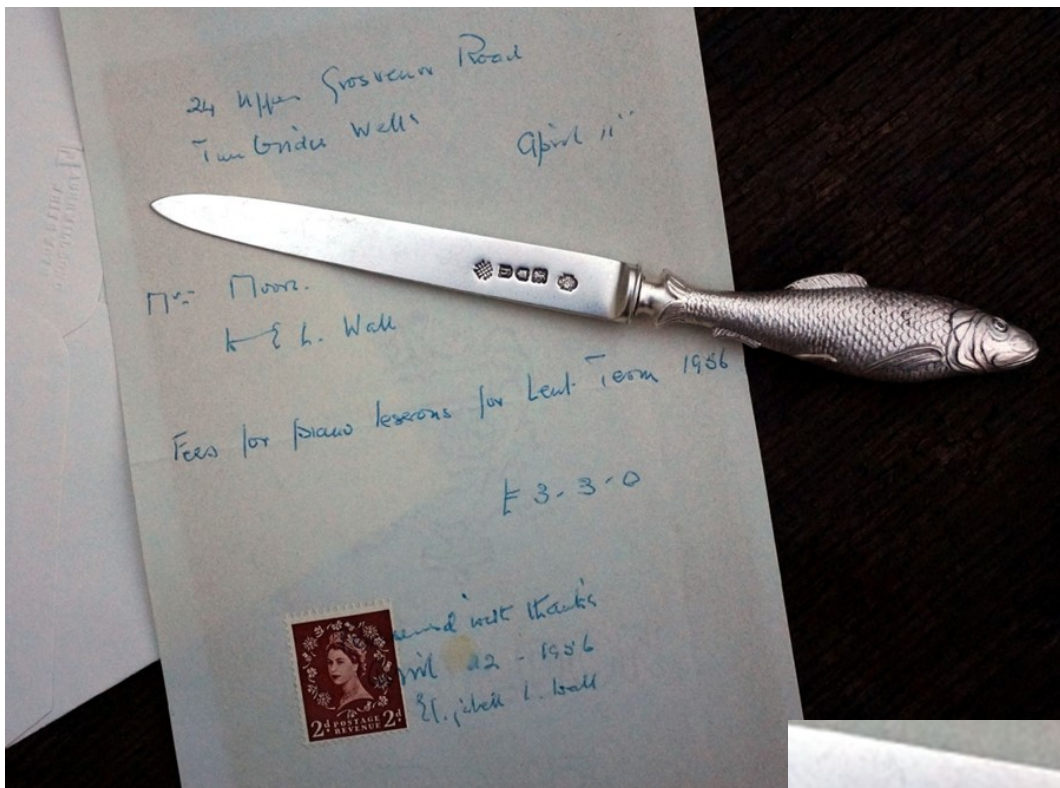 24 Upper Grosvenor Road
Tunbridge Wells
April 11th
Mrs Moore.
to E L. Wall
Fees for piano lessons for Lent Term 1956
£3-3-0
with thanks
April 22 - 1956
Elizabeth L. Wall
2d POSTAGE 2d
REVENUE